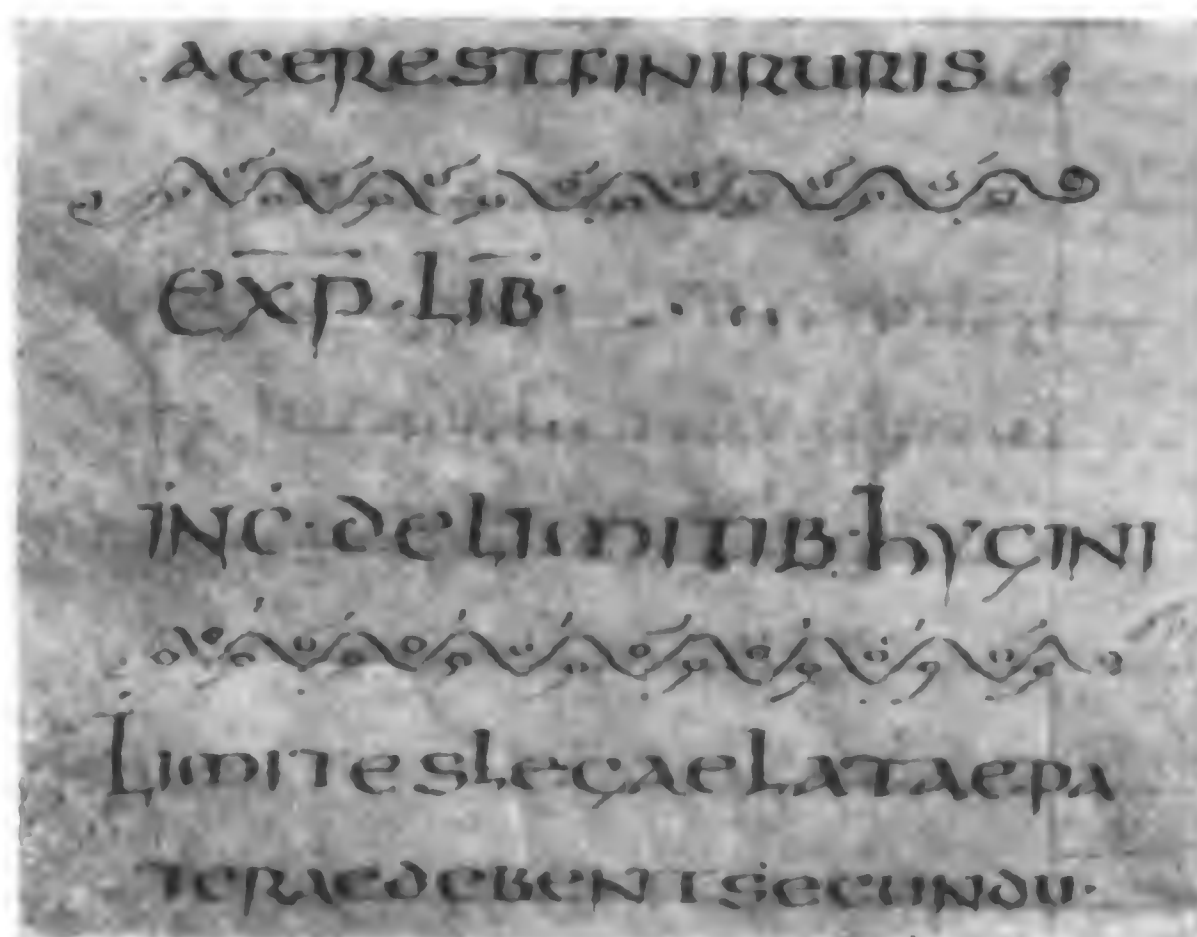 AGERESTFINIRURIS
EXP̅ · LIB̅ ·
INC · DELIMITIB · HYGINI
LIMITESLEGAELATAEPA
TERAEDEBENTSECUNDU ·